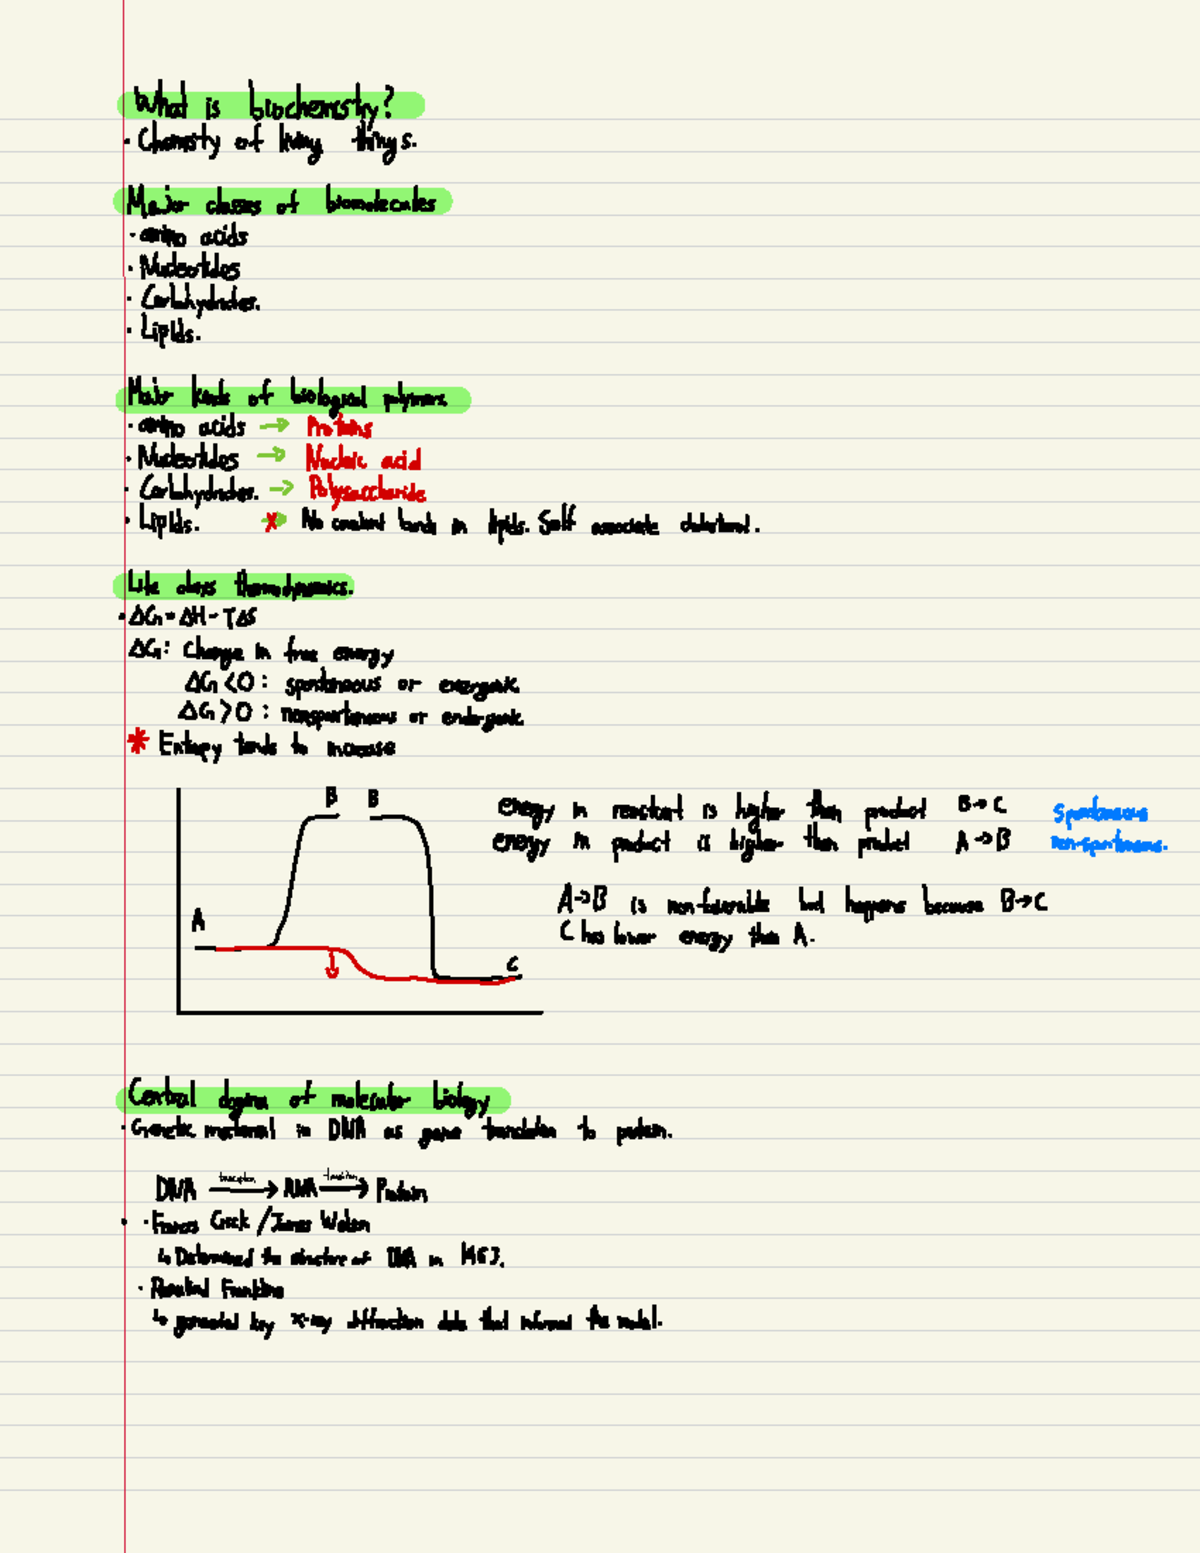 What is biochemistry?
· Chemisty of living things.
Major classes of biomolecules
· amino acids
· Nucleotides
· Carbohydrates.
· Lipids.
Major kinds of biological polymers.
· amino acids → Proteins
· Nucleotides → Nucleic acid
· Carbohydrates. → Polysaccharide
· Lipids. X → No covalent bonds in lipids. Self associate
thermodynamics.
· ΔG = ΔH - TΔS
ΔG: Change in free energy
ΔG < 0 : spontaneous or exergonic
ΔG > 0 : nonspontaneous or endergonic
* Entropy tends to increase
B B
A
C
energy in reactant is higher than product B → C Spontaneous
energy in product is higher than product A → B non-spontaneous.
A → B is non-favorable but happens because B → C
C has lower energy than A.
Central dogma of molecular biology
· Genetic material in DNA as gene translation to protein.
DNA transcription → RNA translation → Protein
· · Francis Crick / James Watson
↳ Determined the structure of DNA in 1953.
· Rosalind Franklin
↳ generated key x-ray diffraction data that informed the model.